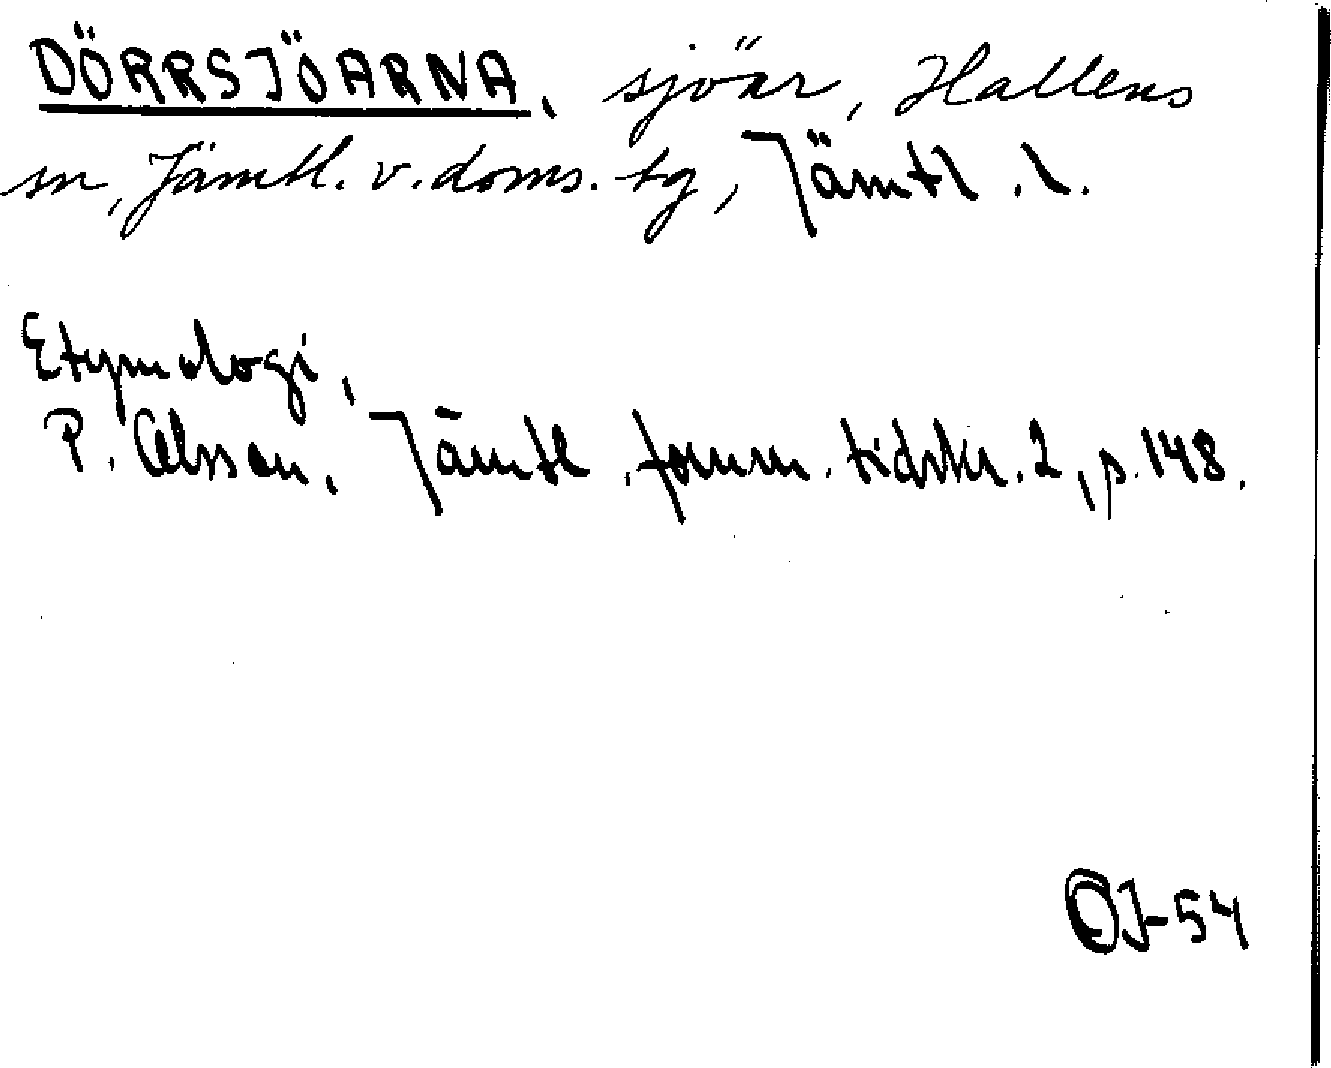 DÖRRSJÖARNA, sjöar, Hallens
sn, Jämtl. v. doms. tg, Jämtl. l.
Etymologi,
P. Olsson, Jämtl. fornm. tidskr. 2, p. 148.
OJ-54